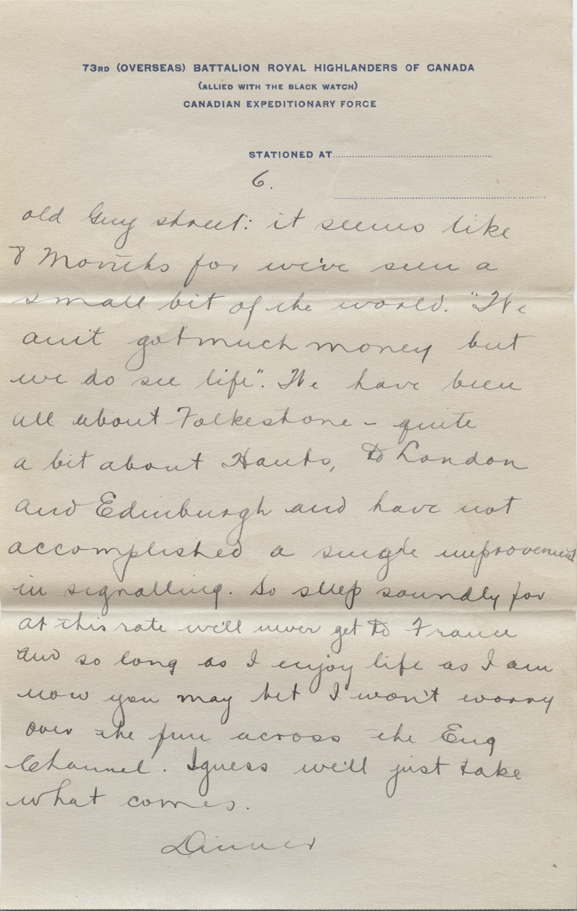 73RD (OVERSEAS) BATTALION ROYAL HIGHLANDERS OF CANADA
(ALLIED WITH THE BLACK WATCH)
CANADIAN EXPEDITIONARY FORCE
STATIONED AT
6.
old Guy street: it seems like
8 Months for we've seen a
small bit of the world. "We
ain't got much money but
we do see life". We have been
all about Folkestone - quite
a bit about Hants, to London
and Edinburgh and have not
accomplished a single improvement
in signalling. So sleep soundly for
at this rate we'll never get to France
and so long as I enjoy life as I am
now you may bet I won't worry
over the fun across the Eng
Channel. I guess we'll just take
what comes.
Dinner